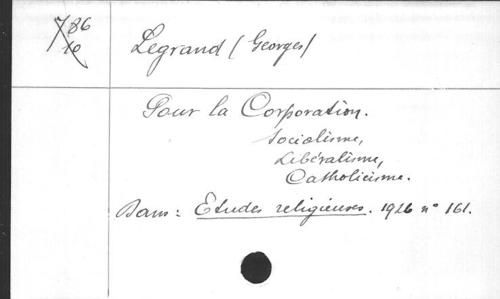 786
Legrand (Georges)
Pour la Corporation.
Socialisme,
Libéralisme,
Catholicisme.
Dans: Etudes religieuses. 1926 n° 161.